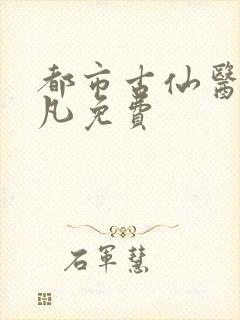 都市古仙醫
凡免費
石軍慧